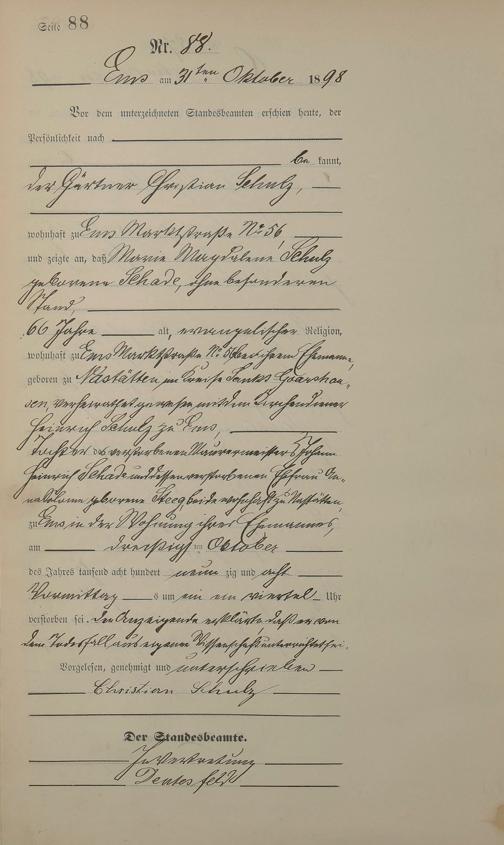 Seite 88
Nr. 88.
Ems am 31ten Oktober 1898
Vor dem unterzeichneten Standesbeamten erschien heute, der
Persönlichkeit nach
be kannt,
der Gärtner Christian Schulz,
wohnhaft zu Ems Marktstraße No 56,
und zeigte an, daß Marie Magdalene Schulz
geborene Schade, ohne besonderen
Stand,
66 Jahre alt, evangelischer Religion,
wohnhaft zu Ems Marktstraße No 56 bei ihrem Ehemann,
geboren zu Nastätten im Kreise Sankt Goarshau-
sen, verheirathet gewesen mit dem Kirchendiener
Heinrich Schulz zu Ems,
Tochter des verstorbenen Maurermeisters Johann
Heinrich Schade und dessen verstorbenen Ehefrau
geborene Steeg, beide wohnhaft zu Nastätten,
zu Ems in der Wohnung ihres Ehemannes,
am dreißigsten Oktober
des Jahres tausend acht hundert neun zig und acht
Vormittags um ein ein viertel Uhr
verstorben sei. Der Anzeigende erklärte, daß er von
dem Todesfall aus eigener Wissenschaft unterrichtet sei.
Vorgelesen, genehmigt und unterschrieben
Christian Schulz
Der Standesbeamte.
In Vertretung